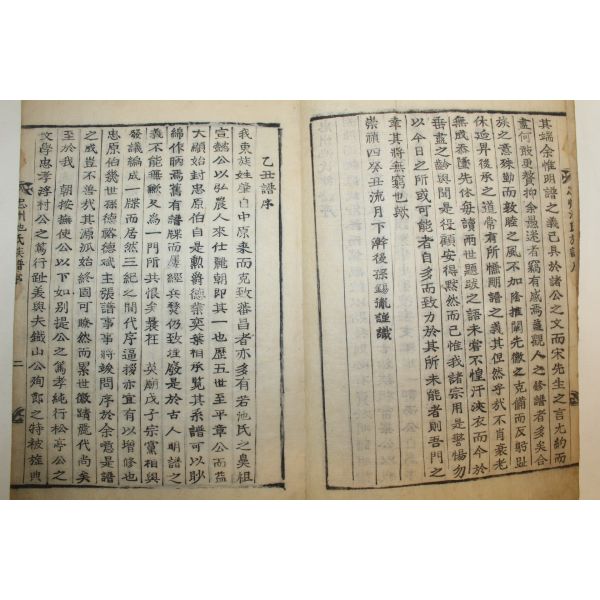 其端余惟明譜之義已具於諸公之文而宋先生之言尤約而
盡何敢更贅抑余愚迷者竊有感焉觀人之修譜者多矣合
族之意殊勤而敦睦之風不加隆推闡先徽之克備而反躬趾
休追昇後承之道常有所慊明譜之義其但然乎哉不肖衰老
無成忝墜先休每讀兩世題跋之語未嘗不惶汗浹衣而今於
垂盡之齡與聞是役顧安得黙然而已惟我諸宗用是警惕勿
以今日之所或可能者自多而致力於其所未能者則吾門之
幸其將無窮也歟
崇禎四癸丑流月下澣後孫錫胤謹識
忠州池氏族譜序
二
乙丑譜序
我東族姓肇自中原來而克致蕃昌者亦多有若池氏之鼻祖
宣懿公以弘農人來仕麗朝即其一也歷五世至平章公而益
大顯始封忠原伯自是勲爵德業奕葉相承覽其系譜可以眇
綿作炳焉舊有譜牒而屢經兵燹仍致湮廢是於古人明譜之
義不能無歉又爲一門所共慨矣曩在英廟戊子宗黨相與
發議編成一牒而居然三紀之間代序逼授亦宜有以增修也
忠原伯幾世孫德裕德斌主張譜事事將竣問序於余噫是譜
之成豈不善哉其源派始終固可瞭然而累世徽蹟龍代尚矣
至於我朝按撫使公以下如別提公之篤孝純行松亭公之
文學忠孝浮村公之篤行趾美與夫鐵山公殉節之特被旌典